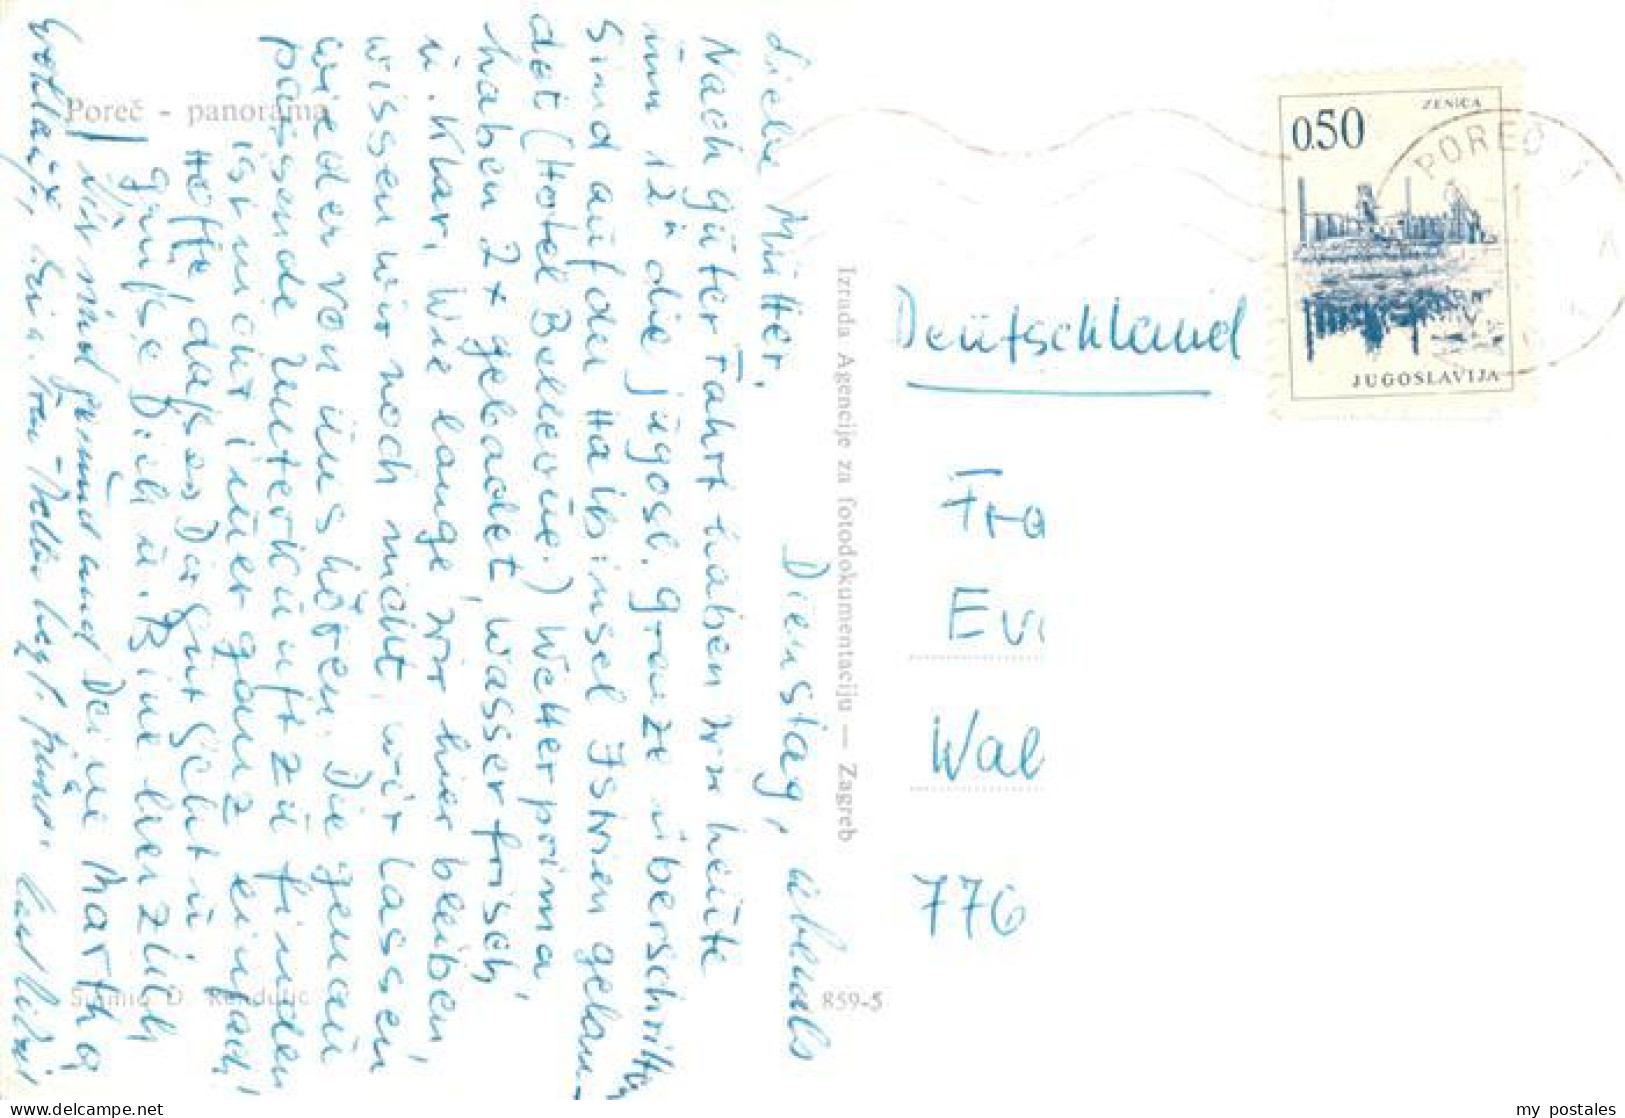 Poreč - panorama
Dienstag, abends
Liebe Mutter,
Nach guter Fahrt haben wir heute
um 12ʰ die jugosl. Grenze überschritten
sind auf der Halbinsel Istrien gelan-
det (Hotel Bellevue.) Wetter prima,
haben 2x gebadet, Wasser frisch
u. klar, Wie lange wir hier bleiben,
wissen wir noch nicht, wir lassen
wieder von uns hören. Die genau
passende Unterkunft zu finden
ist nicht immer ganz einfach!
Hoffe, daß es Dir gut geht u.
grüße Dich u. Bine herzlich
Wir sind gesund und Deine Martha
Izrada Agencije za fotodokumentaciju — Zagreb
859-5
ZENICA
0.50
JUGOSLAVIJA
POREČ
Deutschland
Fra
Wal
776
my postales